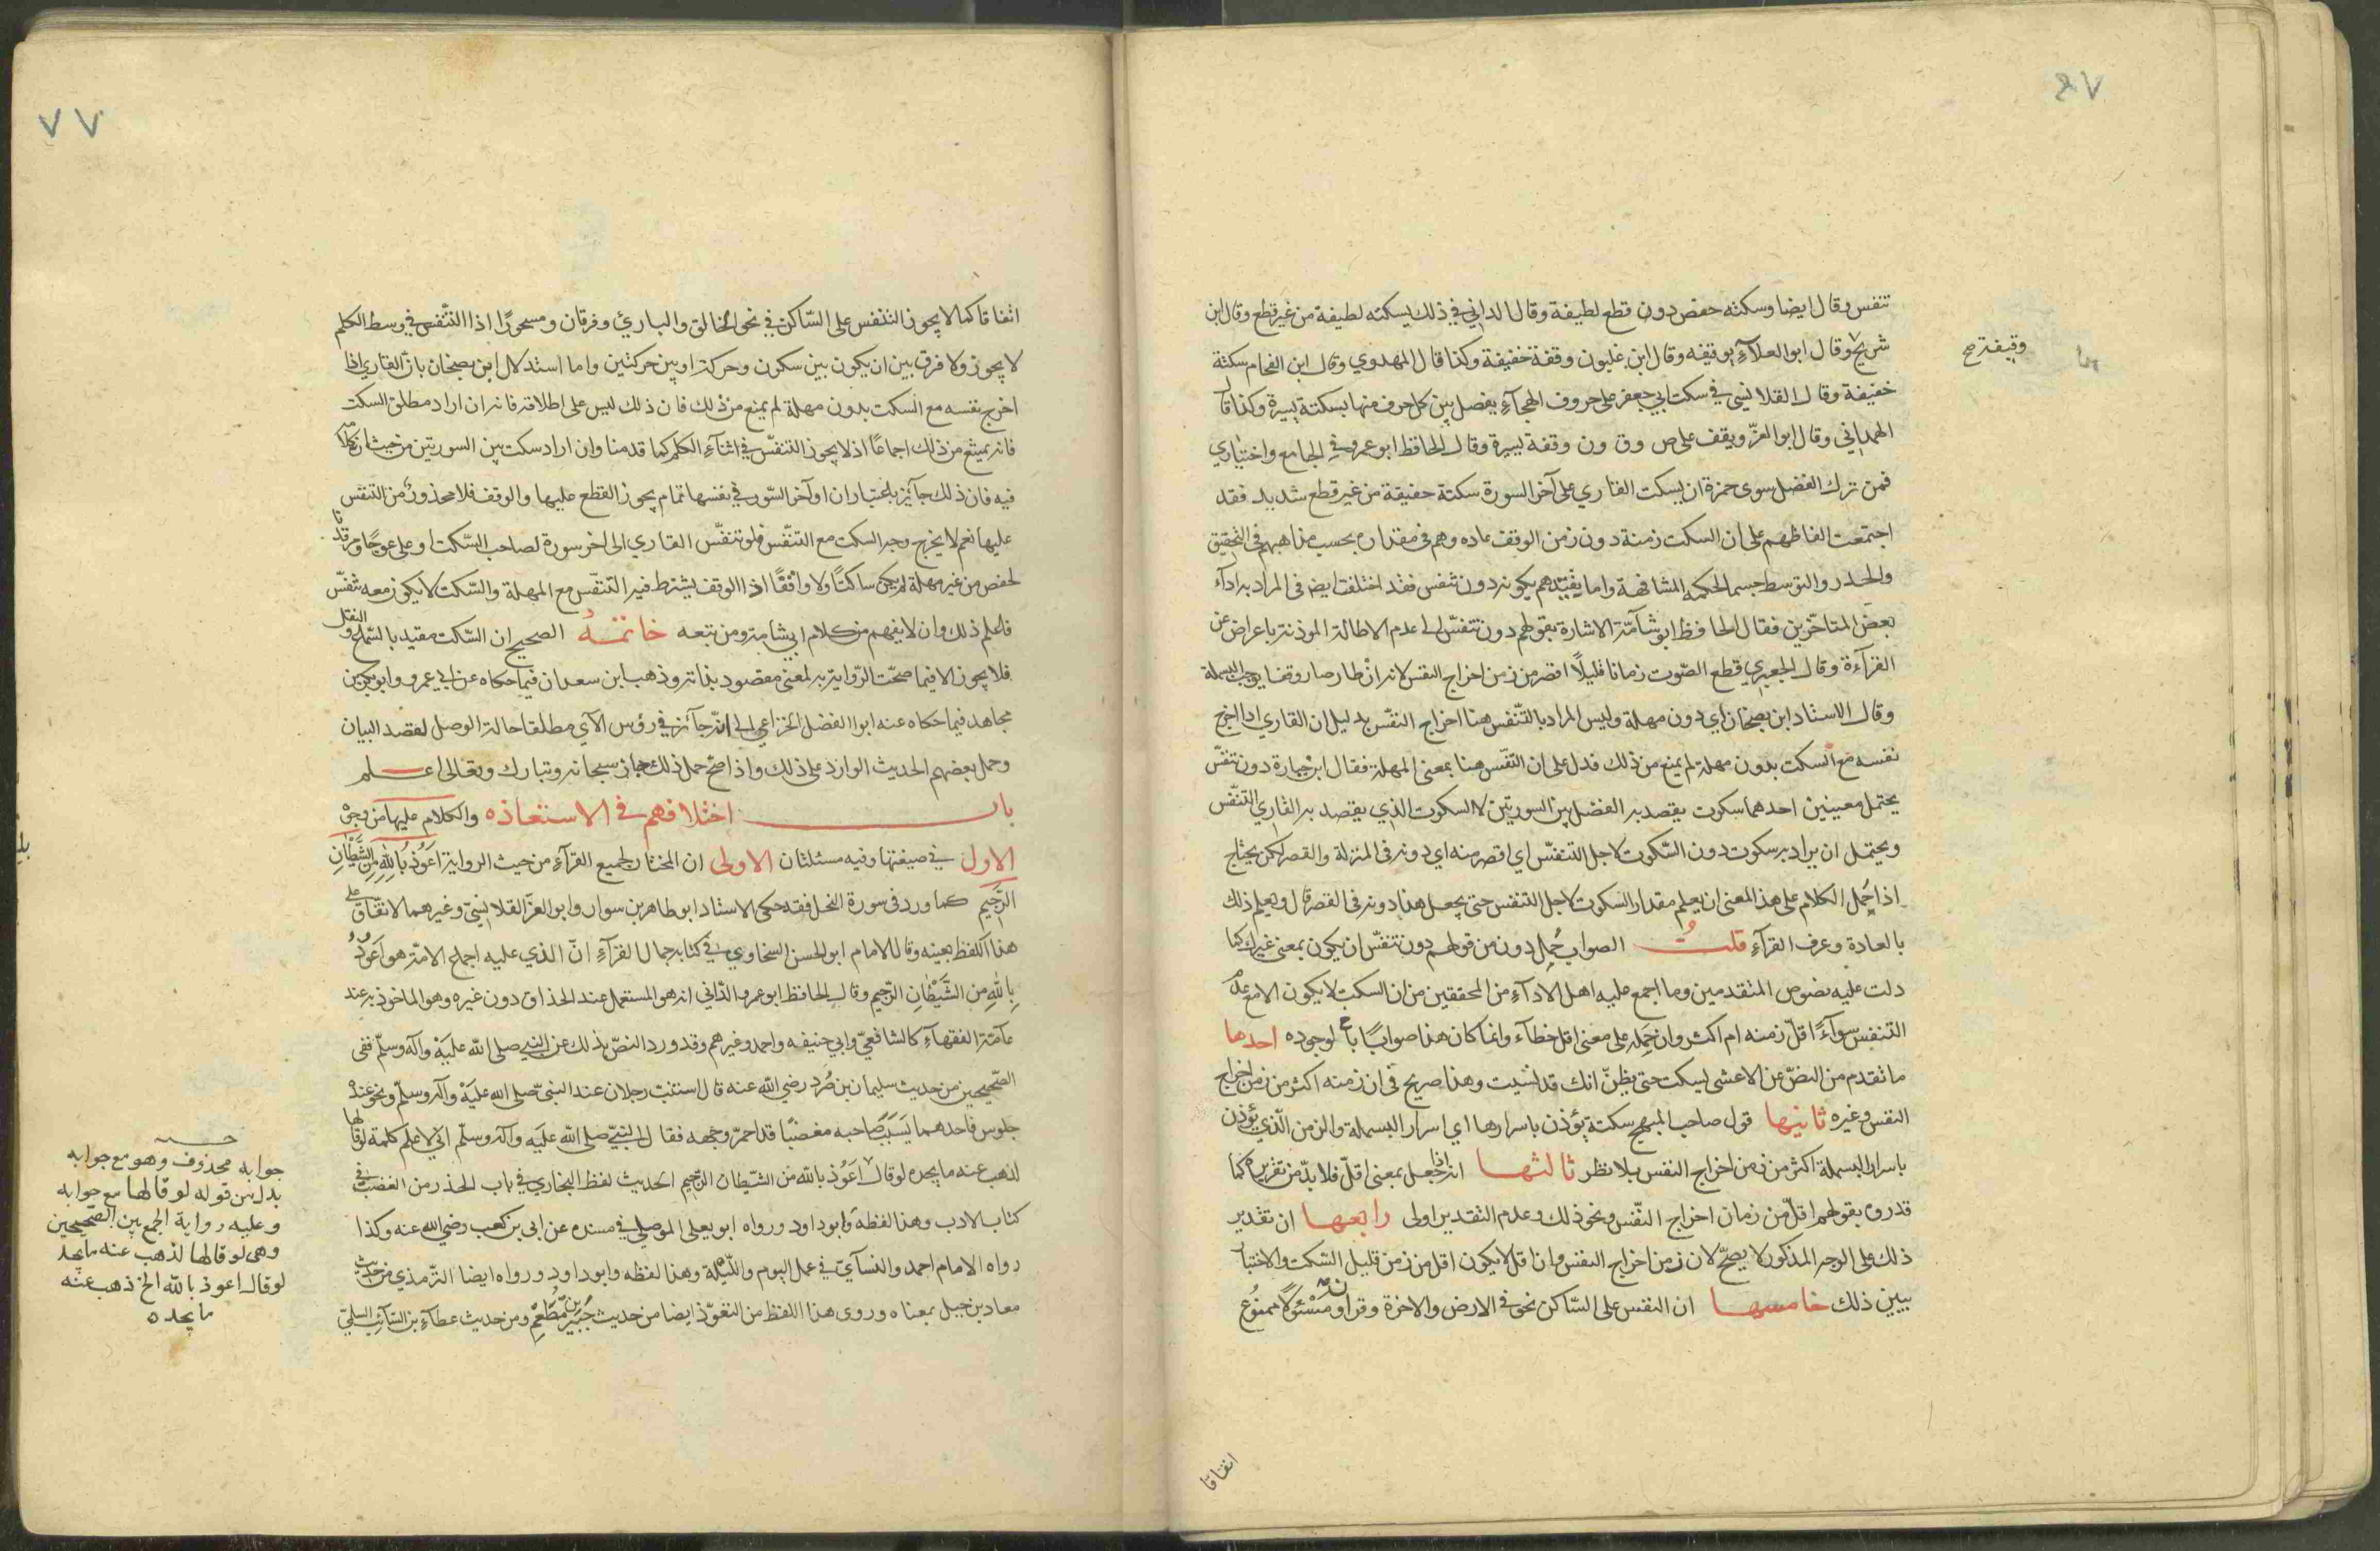 تنفس وقال ايضا وسكته حفص دون قطع لطيفة وقال الداني في ذلك يسكته لطيفة من غير قطع وقال ابن
شريح وقال ابو العلآءِ بوقيفه وقال ابن غلبون وقفة خفيفة وكذا قال المهدوي وقال ابن الفحام سكتة
وقيفة صح
خفيفة وقال القلانسي في سكت ابي جعفر على حروف الهجآءِ يفصل بين كل حرف منها بسكتة يسيرة وكذا قال
الهمداني وقال ابو العزّ ويقف على ص وق ون وقفة يسيرة وقال الحافظ ابو عمرو في الجامع واختياري
فمن ترك الفصل سوى حمزة ان يسكت القاري على آخر السورة سكتة خفيفة من غير قطع شديد فقد
اجتمعت الفاظهم على ان السكت زمنة دون زمن الوقف عاده وهم في مقداره بحسب مذاهبهم في التحقيق
والحدر والتوسط حسبما تحكمه المشافهة واما تقييدهم بكونه دون تنفس فقد اختلفت ايضا في المراد به ارآء
بعض المتاخّرين فقال الحافظ ابو شآمّة الاشارة بقولهم دون تنفّس الى عدم الاطالة الموذنة باعراض عن
القرآءة وقال الجعبري قطع الصّوت زمانا قليلًا اقصر من زمن اخراج النفس لانه ان طار صار وقفا يوجب البسملة
وقال الاستاد ابن بصخان اي دون مهلة وليس المراد بالتّنفس هنا اخراج النفّس بدليل ان القاري اذا اخرج
نفسه مع السكت بدون مهلة لم يمنع من ذلك فدل على ان التنفّس هنا بمعنى المهلة فقال ابن جبارة دون تنفّس
يحتمل معينين احدهما سكوت يقصد به الفصل بين السورتين لا السكوت الذي يقصد به القاري التنفّس
ويحتمل ان يراد به سكوت دون السّكوت لاجل التنفسّ اي اقصر منه اي دونه في المنزلة والقصر لكن يحتاج
اذا حُمِل الكلام على هذا المعنى ان يعلم مقدار السكوت لاجل التنفس حتى يجعل هذا دونه في القصر قال ويعلم ذلك
بالعادة وعرف القرآءِ قلتُ الصواب حُمِل دون من قولهم دون تنفسّ ان يكون بمعنى غير كما
دلت عليه نصوص المتقدمين وما اجمع عليه اهل الادآءِ من المحققين من ان السكت لا يكون الا مع عدم
التنفس سوآءً اقلّ زمنه ام اكثر وان حَمله على معنى اقل خطآء وانما كان هذا صوابًا لوجوده احدها
ما تقدم من النصّ عن الاعشى ليسكت حتى يظنّ انك قد انسيت وهذا صريح في ان زمنه اكثر من زمن اخراج
النفس وغيره ثانيها قول صاحب المبهج سكتة يؤذن باسرارها اي اسرار البسملة والزمن الذي يؤذن
باسرار البسملة اكثر من زمن اخراج النفس بلا نظر ثالثها انه اذا جعل بمعنى اقلّ فلا بدّ من تقديره كما
قدروه بقولهم اقلّ من زمان اخراج النفّس ونحو ذلك وعدم التقدير اولى رابعها ان تقدير
ذلك على الوجه المذكور لا يصحّ لان زمن اخراج النفس وان قل لا يكون اقل من زمن قليل السّكت والاختبار
يبين ذلك خامسها ان النفس على السّاكن نحو في الارض والاخرة وقرآن ومَسْئولًا ممنوُع
اتفاقا
٧٧
اتفاقا كما لا يجوز التنفس على السّاكن في نحو الخالق والباري وفرقان ومسحورًا اذا التنّفس في وسط الكلم
لا يجوز ولا فرق بين ان يكون بين سكون وحركة او بين حركتين واما استدلال ابن بصخان بانّ القاري اذا
اخرج نفسه مع السكت بدون مهلة لم يمنع من ذلك فان ذلك ليس على اطلاقه فانه ان اراد مطلق السكت
فانه يمتنع من ذلك اجماعًا اذ لا يجوز التنفسّ في اثنآءِ الكلم كما قدمنا وان اراد سكت بين السورتين من حيث ان كلامه
فيه فان ذلك جآئِز باعتبار ان اوآخر السّور في نفسها تمام يجوز القطع عليها والوقف فلا محذور من التنفس
عليها نعم لا يخرج وجه السكت مع التنفّس فلو تنفّس القاري الى اخر سورة لصاحب السّكت او على عوجًا ومرقدنا
لحفص من غير مهلة لم يكن ساكتًا ولا واقفًا اذ الوقف يشترط فيه التنّفس مع المهلة والسّكت لا يكون معه تنفسّ
فاعلم ذلك وان لا يفهم من كلام ابي شامة ومن تبعه خاتمـةُ الصحيح ان السّكت مقيد بالسّماع والنقل
فلا يجوز الا فيما صحّت الرّواية به لمعنى مقصود بذاته وذهب ابن سعدان فيما حكاه عن ابي عمرو وابو بكر بن
مجاهد فيما حكاه عنه ابو الفضل الخزاعي الى انه جآئز في رؤس الآي مطلقا حالة الوصل لقصد البيان
وحمل بعضهم الحديث الوارد على ذلك واذا صح حمل ذلك جاز سبحانه وتبارك وتعالى اعلم
باب اختلافهم في الاستعاذه والكلام عليها من وجوه
الاول في صيغتها وفيه مسئلتان الاولى ان المختار لجميع القرآءِ من حيث الرواية اعَوُذ بِاللهِ مِنَ الشَّيْطَانِ
الرّجيم كما ورد في سورة النحل فقد حكى الاستاد ابو طاهر بن سوار وابو العزّ القلانسيّ وغيرهما الاتفّاق على
هذا اللّفظ بعينه وقال الامام ابو الحسن السخاوي في كتابه جمال القرآءِ انّ الذي عليه اجماع الامّة هو اَعَوُذُ
بِاللهِ مِن الشَّيْطَانِ الرّجيم وقال الحافظ ابو عمرو الدّاني انه هو المستعمل عند الحذاق دون غيره وهو الماخوذ به عند
عآمّة الفقهآءِ كالشافعيّ وابي حنيفه واحمد وغيرهم وقد ورد النصّ بذلك عن النبي صلى الله عليَه وآله وسلّم ففي
الصّحيحين من حديث سليمان بن صُرَد رضي الله عنه قال استنب رجلان عند النبيّ صلى الله عليَه وآله وسلّم ونحو عنده
جلوس فاحدهما يَسَبّ صَاحبه مغضبًا قد احمرّ وجهه فقال النبّيّ صلى الله عليَه وآله وسلّم انّي لاعلم كلمة لو قالها
لذهب عنه ما يجده لو قال اعَوُذ بالله مَن الشّيطان الرّجيم الحديث لفظ البخاري في باب الحذر من الغضب في
كتاب الادب وهذا لفظه وابو داود ورواه ابو يعلى الموصلي في مسنده عن ابي بن كعب رضي الله عنه وكذا
رواه الامام احمد والنسآئي في عمل اليوم واللّيلة وهذا لفظه وابو داود ورواه ايضا الترّمذي من حديث
معاد بن جبل بمعناه وروى هذا اللفظ من التعوّذ ايضا من حديث جُبَير بن مُطْعَم ومن حديث عطآءِ بن السّآئِب السلميّ
جوابه محذوف وهو مع جوابه
بدل من قوله لو قالها مع جوابه
وعليه رواية الجمع بين الصّحيحين
وهى لو قالها لذهب عنه ما يجد
لو قال اعوذ بالله الخ ذهب عنه
ما يجده